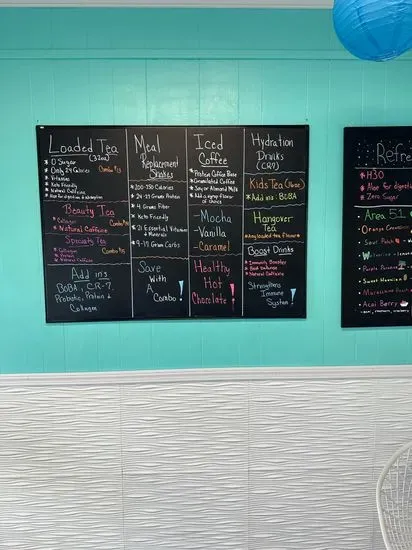 Loaded Tea
(32oz)
* 0 Sugar
* Only 24 Calories
* Vitamins
* Keto Friendly
* Natural Caffeine
Combo $13
Beauty Tea
* Collagen
* Natural Caffeine
Specialty Tea
* Collagen
* Protein
* Natural Caffeine
Combo $15
Add ins
BOBA, CR-7,
Probiotic, Protein &
Collagen
Meal
Replacement
Shakes
* 200-250 Calories
* 24-27 Grams Protein
* Keto Friendly
* 21 Essential Vitamins
& Minerals
* 9-17 Grams Carbs
Save
With
A
Combo!
Iced
Coffee
* Protein Coffee Base
* Granulated Coffee
* Soy or Almond Milk
* Add a syrup flavor
of choice
-Mocha
-Vanilla
-Caramel
Healthy
Hot
Chocolate!
Hydration
Drinks
(CR7)
Kids Tea
* Add ins: BOBA
Hangover
Tea
* Any loaded tea flavor *
Boost Drinks
* Immunity Booster
* Natural Caffeine
Strengthens
Immune
System!
Refre
* H3O
* Aloe for digest
* Zero Sugar
Area 51
• Orange Cream
• Sour Patch
• Watermelon
• Purple Passion
• Sweet Hawaii
• Maraschino
• Acai Berry